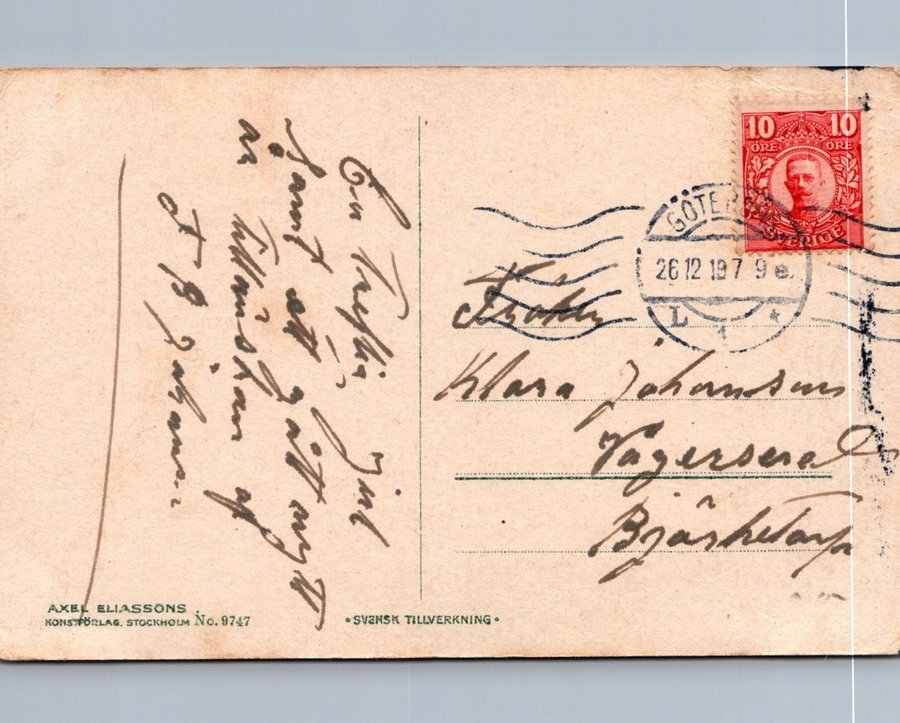 En treflig Jul
samt ett gott nytt
år tillönskas af
J B Johans
Fröken
Klara Johansson
Bjärketorp
10 10
ÖRE ÖRE
SVERIGE
GÖTEBORG
26 12 19 7 9 e.
L 1
AXEL ELIASSONS
KONSTFÖRLAG. STOCKHOLM No. 9747
• SVENSK TILLVERKNING •